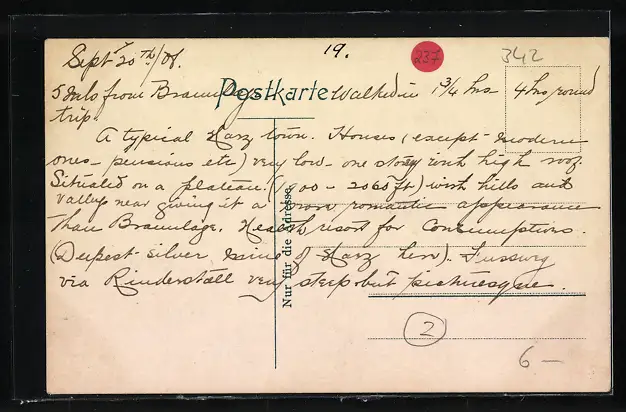 Sept 20th/08.
19.
237
342
Postkarte
5 mls from Braunlage Walked in 1 3/4 hrs 4 hrs round
trip.
A typical Harz town. Houses (except modern
ones - pensions etc) very low - one story with high roof
Situated on a plateau. ( - 2060 ft) with hills and
valleys near giving it a more romantic appearance
than Braunlage. Health resort for Consumptives.
(Deepest silver mine of Harz here). Fussweg
via Rinderstall very steep but picturesque.
Nur für die Adresse
2
6 —